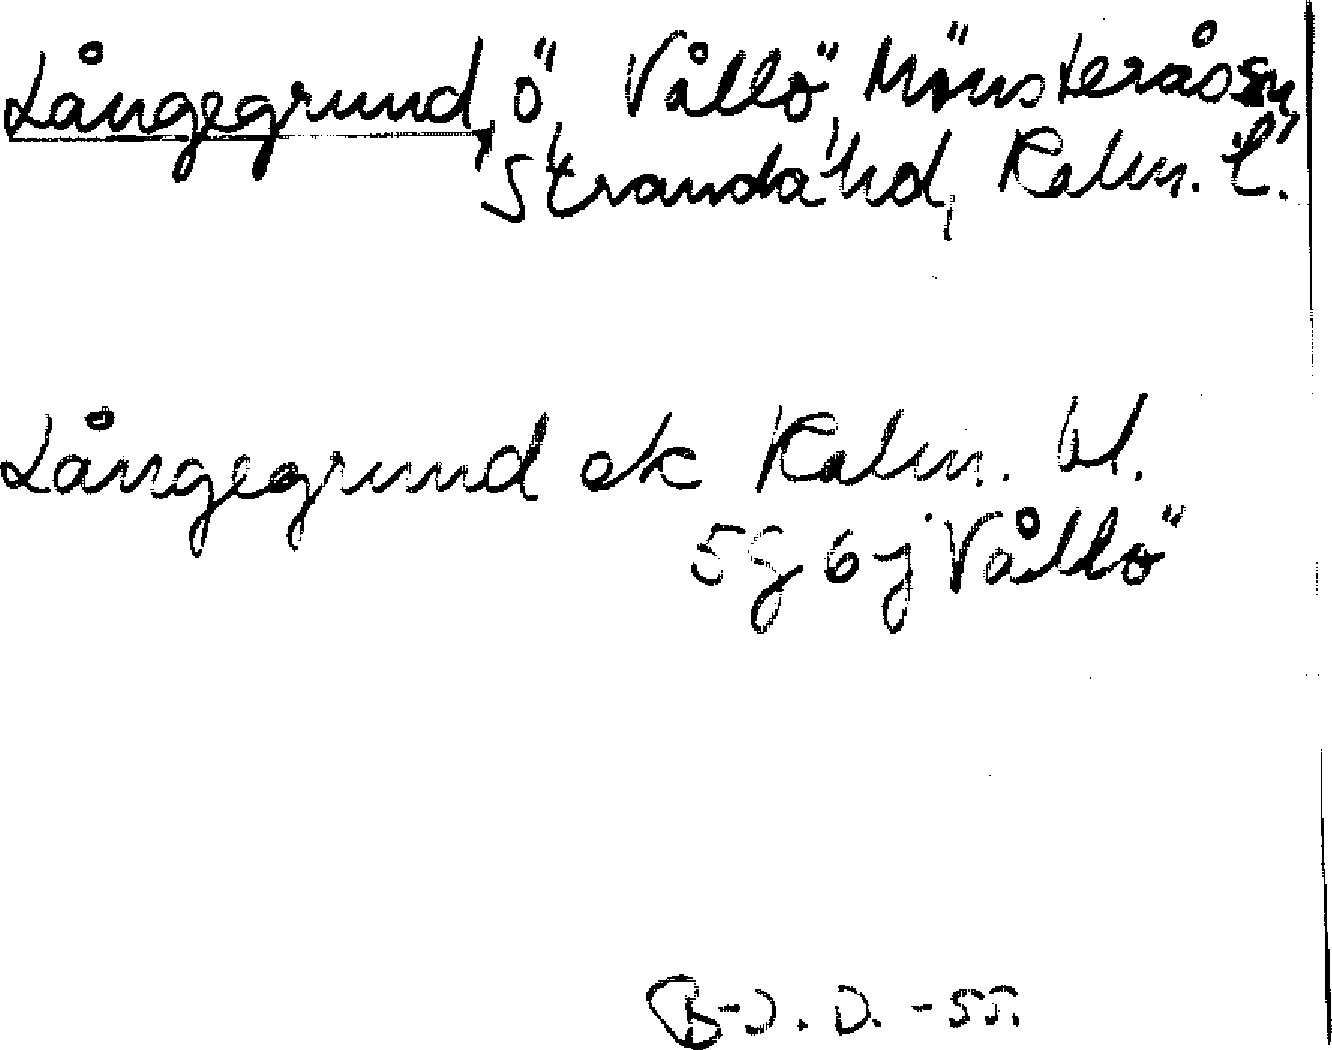 Långegrund, ö, Vållö, Mönsterås sn,
Stranda hd, Kalm. l.
Långegrund ek Kalm. bl.
5g 6j Vållö
B-J. D. -55.